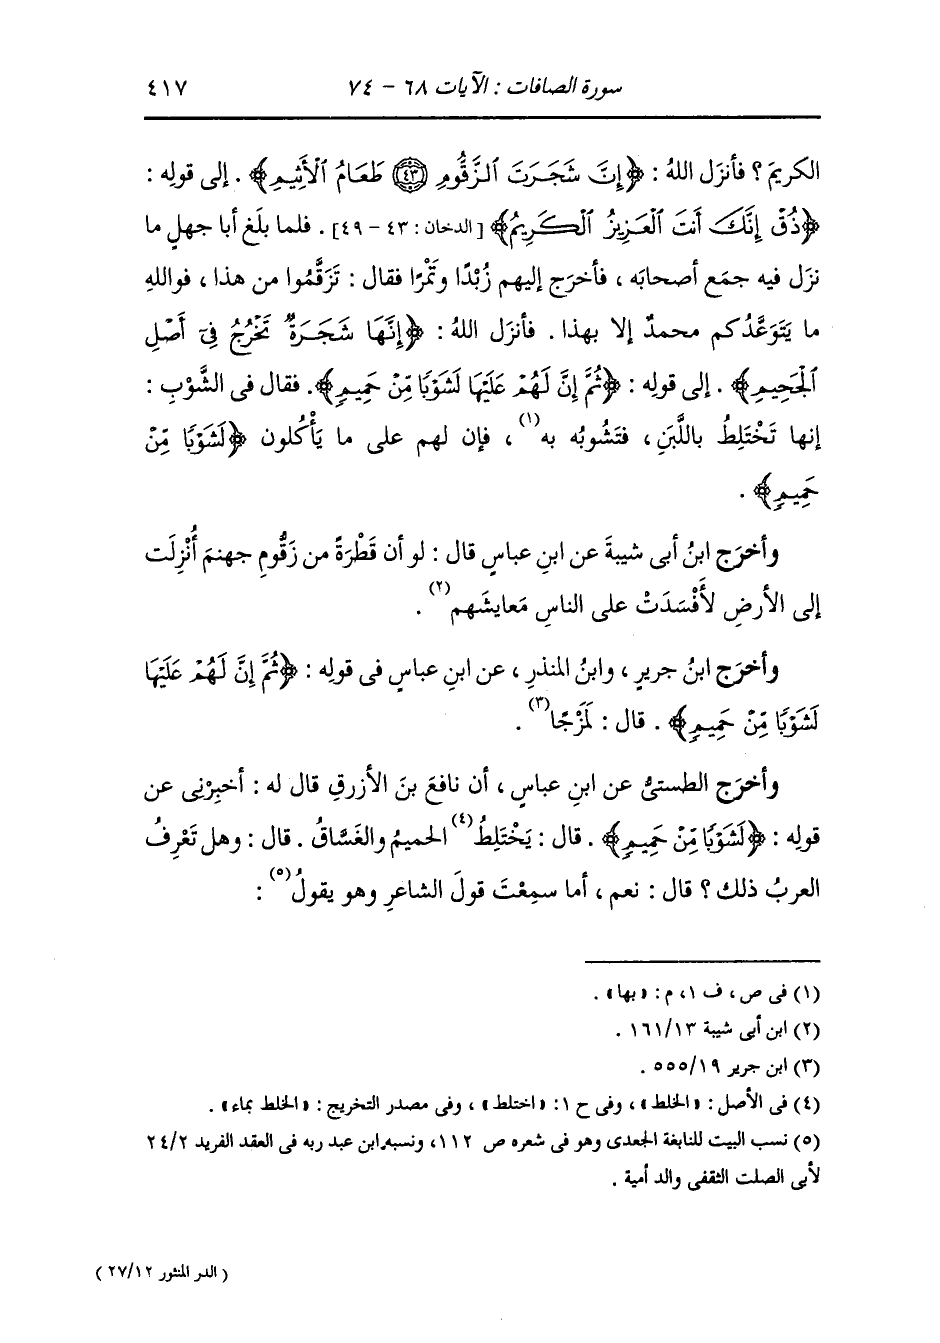 سورة الصافات : الآيات ٦٨ - ٧٤ ٤١٧
الكريمَ؟ فأنزَل اللهُ : ﴿إِنَّ شَجَرَتَ ٱلزَّقُّومِ ۝٤٣ طَعَامُ ٱلْأَثِيمِ﴾ . إلى قولِه :
﴿ذُقْ إِنَّكَ أَنتَ ٱلْعَزِيزُ ٱلْكَرِيمُ﴾ [الدخان : ٤٣ - ٤٩] . فلما بلَغ أبا جهلٍ ما
نزَل فيه جمَع أصحابَه ، فأخرَج إليهم زُبْدًا وتَمْرًا فقال : تَزَقَّموا من هذا ، فواللهِ
ما يَتَوَعَّدُكم محمدٌ إلا بهذا . فأنزَل اللهُ : ﴿إِنَّهَا شَجَرَةٌ تَخْرُجُ فِىٓ أَصْلِ
ٱلْجَحِيمِ﴾ . إلى قولِه : ﴿ثُمَّ إِنَّ لَهُمْ عَلَيْهَا لَشَوْبًا مِّنْ حَمِيمٍ﴾. فقال فى الشَّوْبِ :
إنها تَخْتَلِطُ باللَّبَنِ ، فتَشُوبُه به(١) ، فإن لهم على ما يَأْكُلون ﴿لَشَوْبًا مِّنْ
حَمِيمٍ﴾ .
وأخرَج ابنُ أبى شيبةَ عن ابنِ عباسٍ قال : لو أن قَطْرَةً من زَقُّومِ جهنمَ أُنْزِلَت
إلى الأرضِ لأَفْسَدَتْ على الناسِ مَعايشَهم(٢) .
وأخرَج ابنُ جريرٍ ، وابنُ المنذرِ ، عن ابنِ عباسٍ فى قولِه : ﴿ثُمَّ إِنَّ لَهُمْ عَلَيْهَا
لَشَوْبًا مِّنْ حَمِيمٍ﴾ . قال : لَمَزْجًا(٣) .
وأخرَج الطستىُّ عن ابنِ عباسٍ ، أن نافعَ بنَ الأزرقِ قال له : أخبِرْنِى عن
قولِه : ﴿لَشَوْبًا مِّنْ حَمِيمٍ﴾ . قال : يَخْتَلِطُ(٤) الحميمُ والغَسَّاقُ . قال : وهل تَعْرِفُ
العربُ ذلك ؟ قال : نعم ، أما سمِعْتَ قولَ الشاعرِ وهو يقولُ(٥) :
(١) فى ص ، ف ١، م : «بها» .
(٢) ابن أبى شيبة ١٦١/١٣ .
(٣) ابن جرير ٥٥٥/١٩ .
(٤) فى الأصل : «الخلط» ، وفى ح ١: «اختلط» ، وفى مصدر التخريج : «الخلط بماء» .
(٥) نسب البيت للنابغة الجعدى وهو فى شعره ص ١١٢، ونسبه ابن عبد ربه فى العقد الفريد ٢٤/٢
لأبى الصلت الثقفى والد أمية .
( الدر المنثور ٢٧/١٢ )